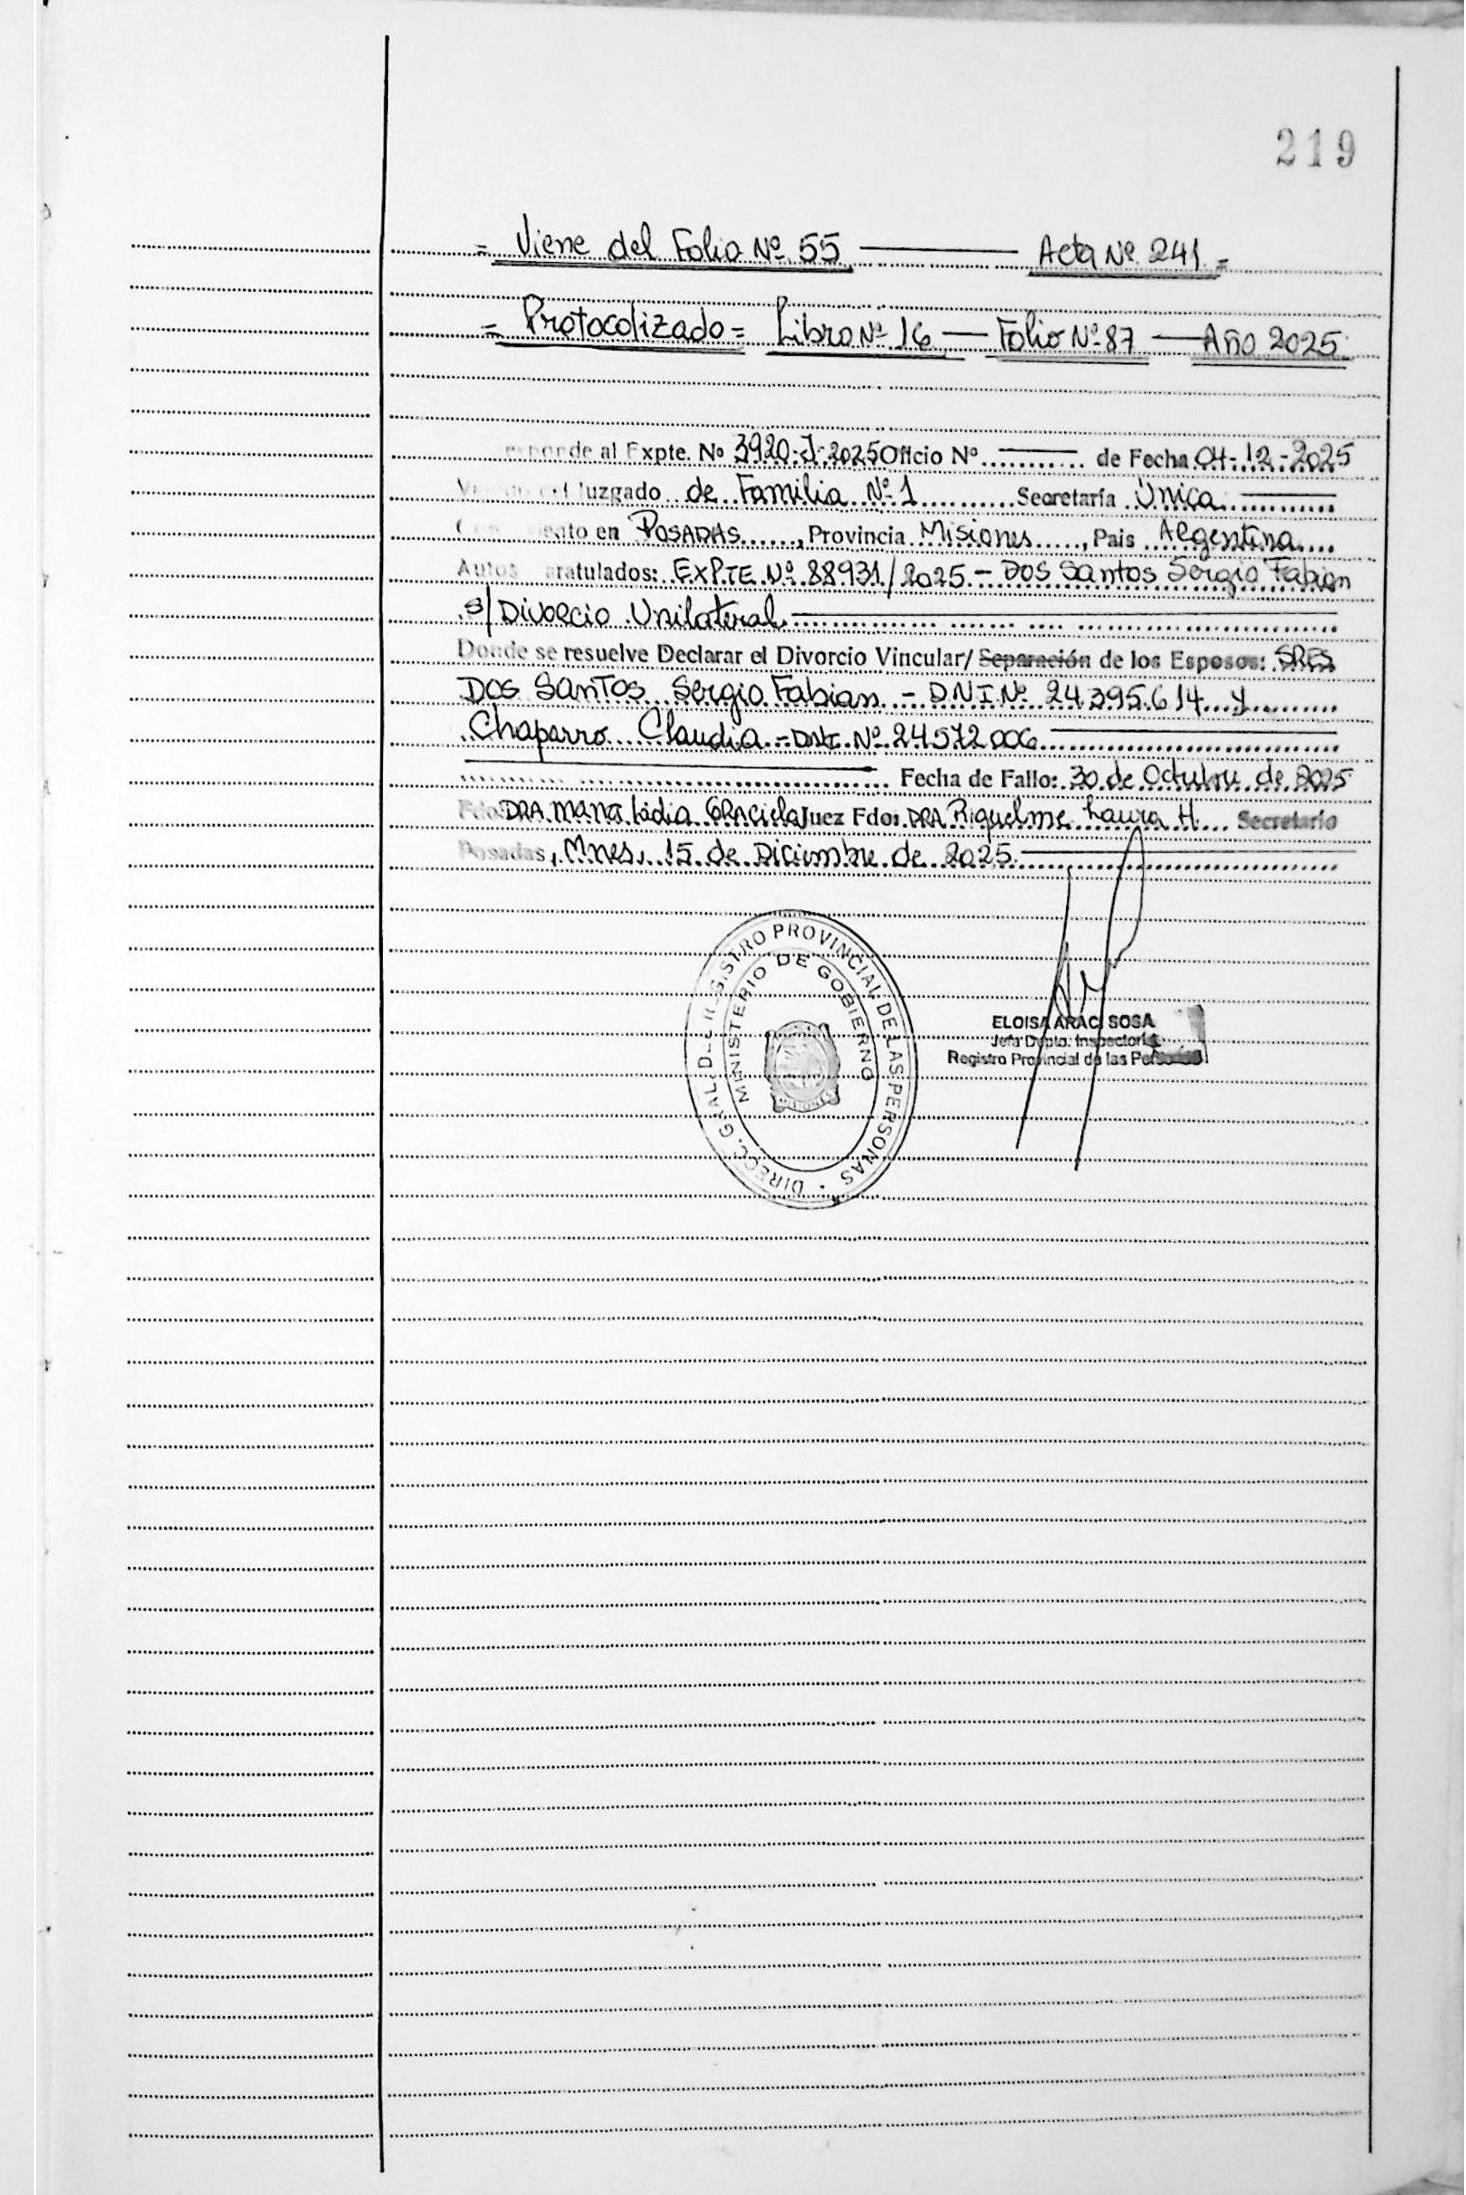 219
= Viene del Folio Nº 55 — Acta Nº 241 =
= Protocolizado = Libro Nº 16 — Folio Nº 87 — Año 2025
esponde al Expte. Nº 3920-J-2025 Oficio Nº ——— de Fecha 04-12-2025
Juzgado de Familia Nº 1 Secretaría Única
ento en POSADAS, Provincia Misiones, Pais Argentina
Autos aratulados: EXPTE Nº 88931/2025 - DOS Santos Sergio Fabian
s/ Divorcio Unilateral
Donde se resuelve Declarar el Divorcio Vincular/ Separación de los Esposos: SRES
DOS SANTOS Sergio Fabian - DNI Nº 24.395.614 y
Chaparro Claudia - DNI Nº 24572006
Fecha de Fallo: 30 de Octubre de 2025
Fdo: DRA Maria Lidia GRACiela Juez Fdo: DRA Riquelme Laura H. Secretario
Posadas, Mnes, 15 de Diciembre de 2025
DIRECC. GRAL. DEL REGISTRO PROVINCIAL DE LAS PERSONAS
MINISTERIO DE GOBIERNO
ELOISA ARACI SOSA
Jefa Dpto. Inspectoría
Registro Provincial de las Personas